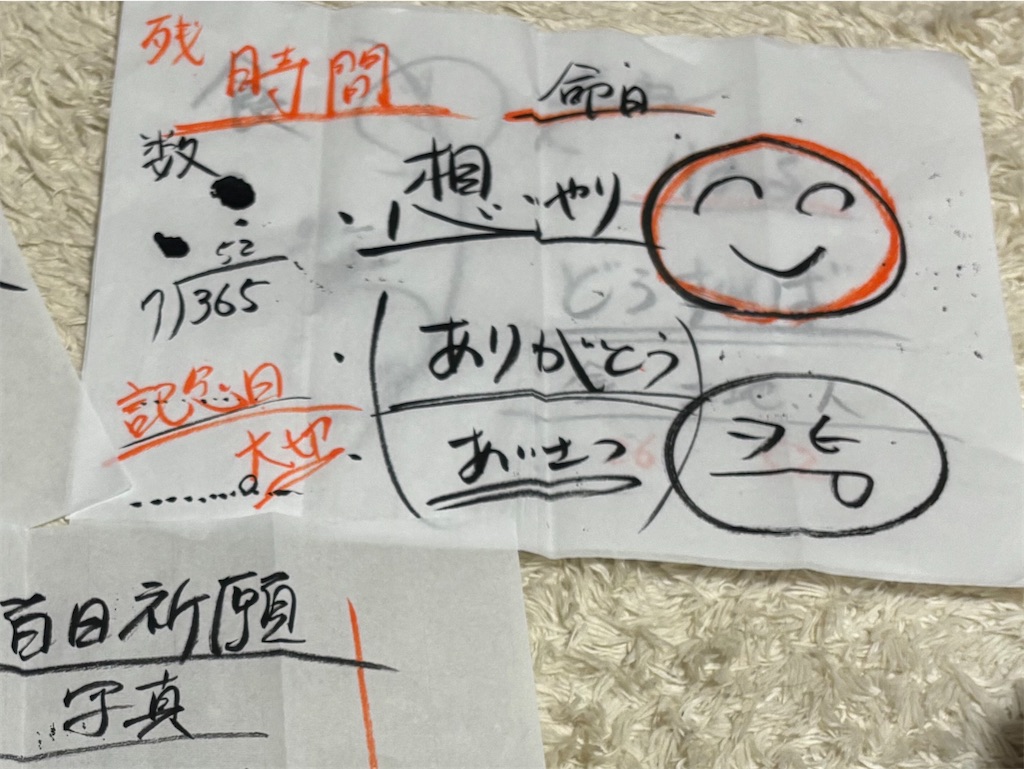 残
時間
命日
数
想いやり
52
7)365
ありがとう
記念日
大切
あいさつ
百日祈願
写真